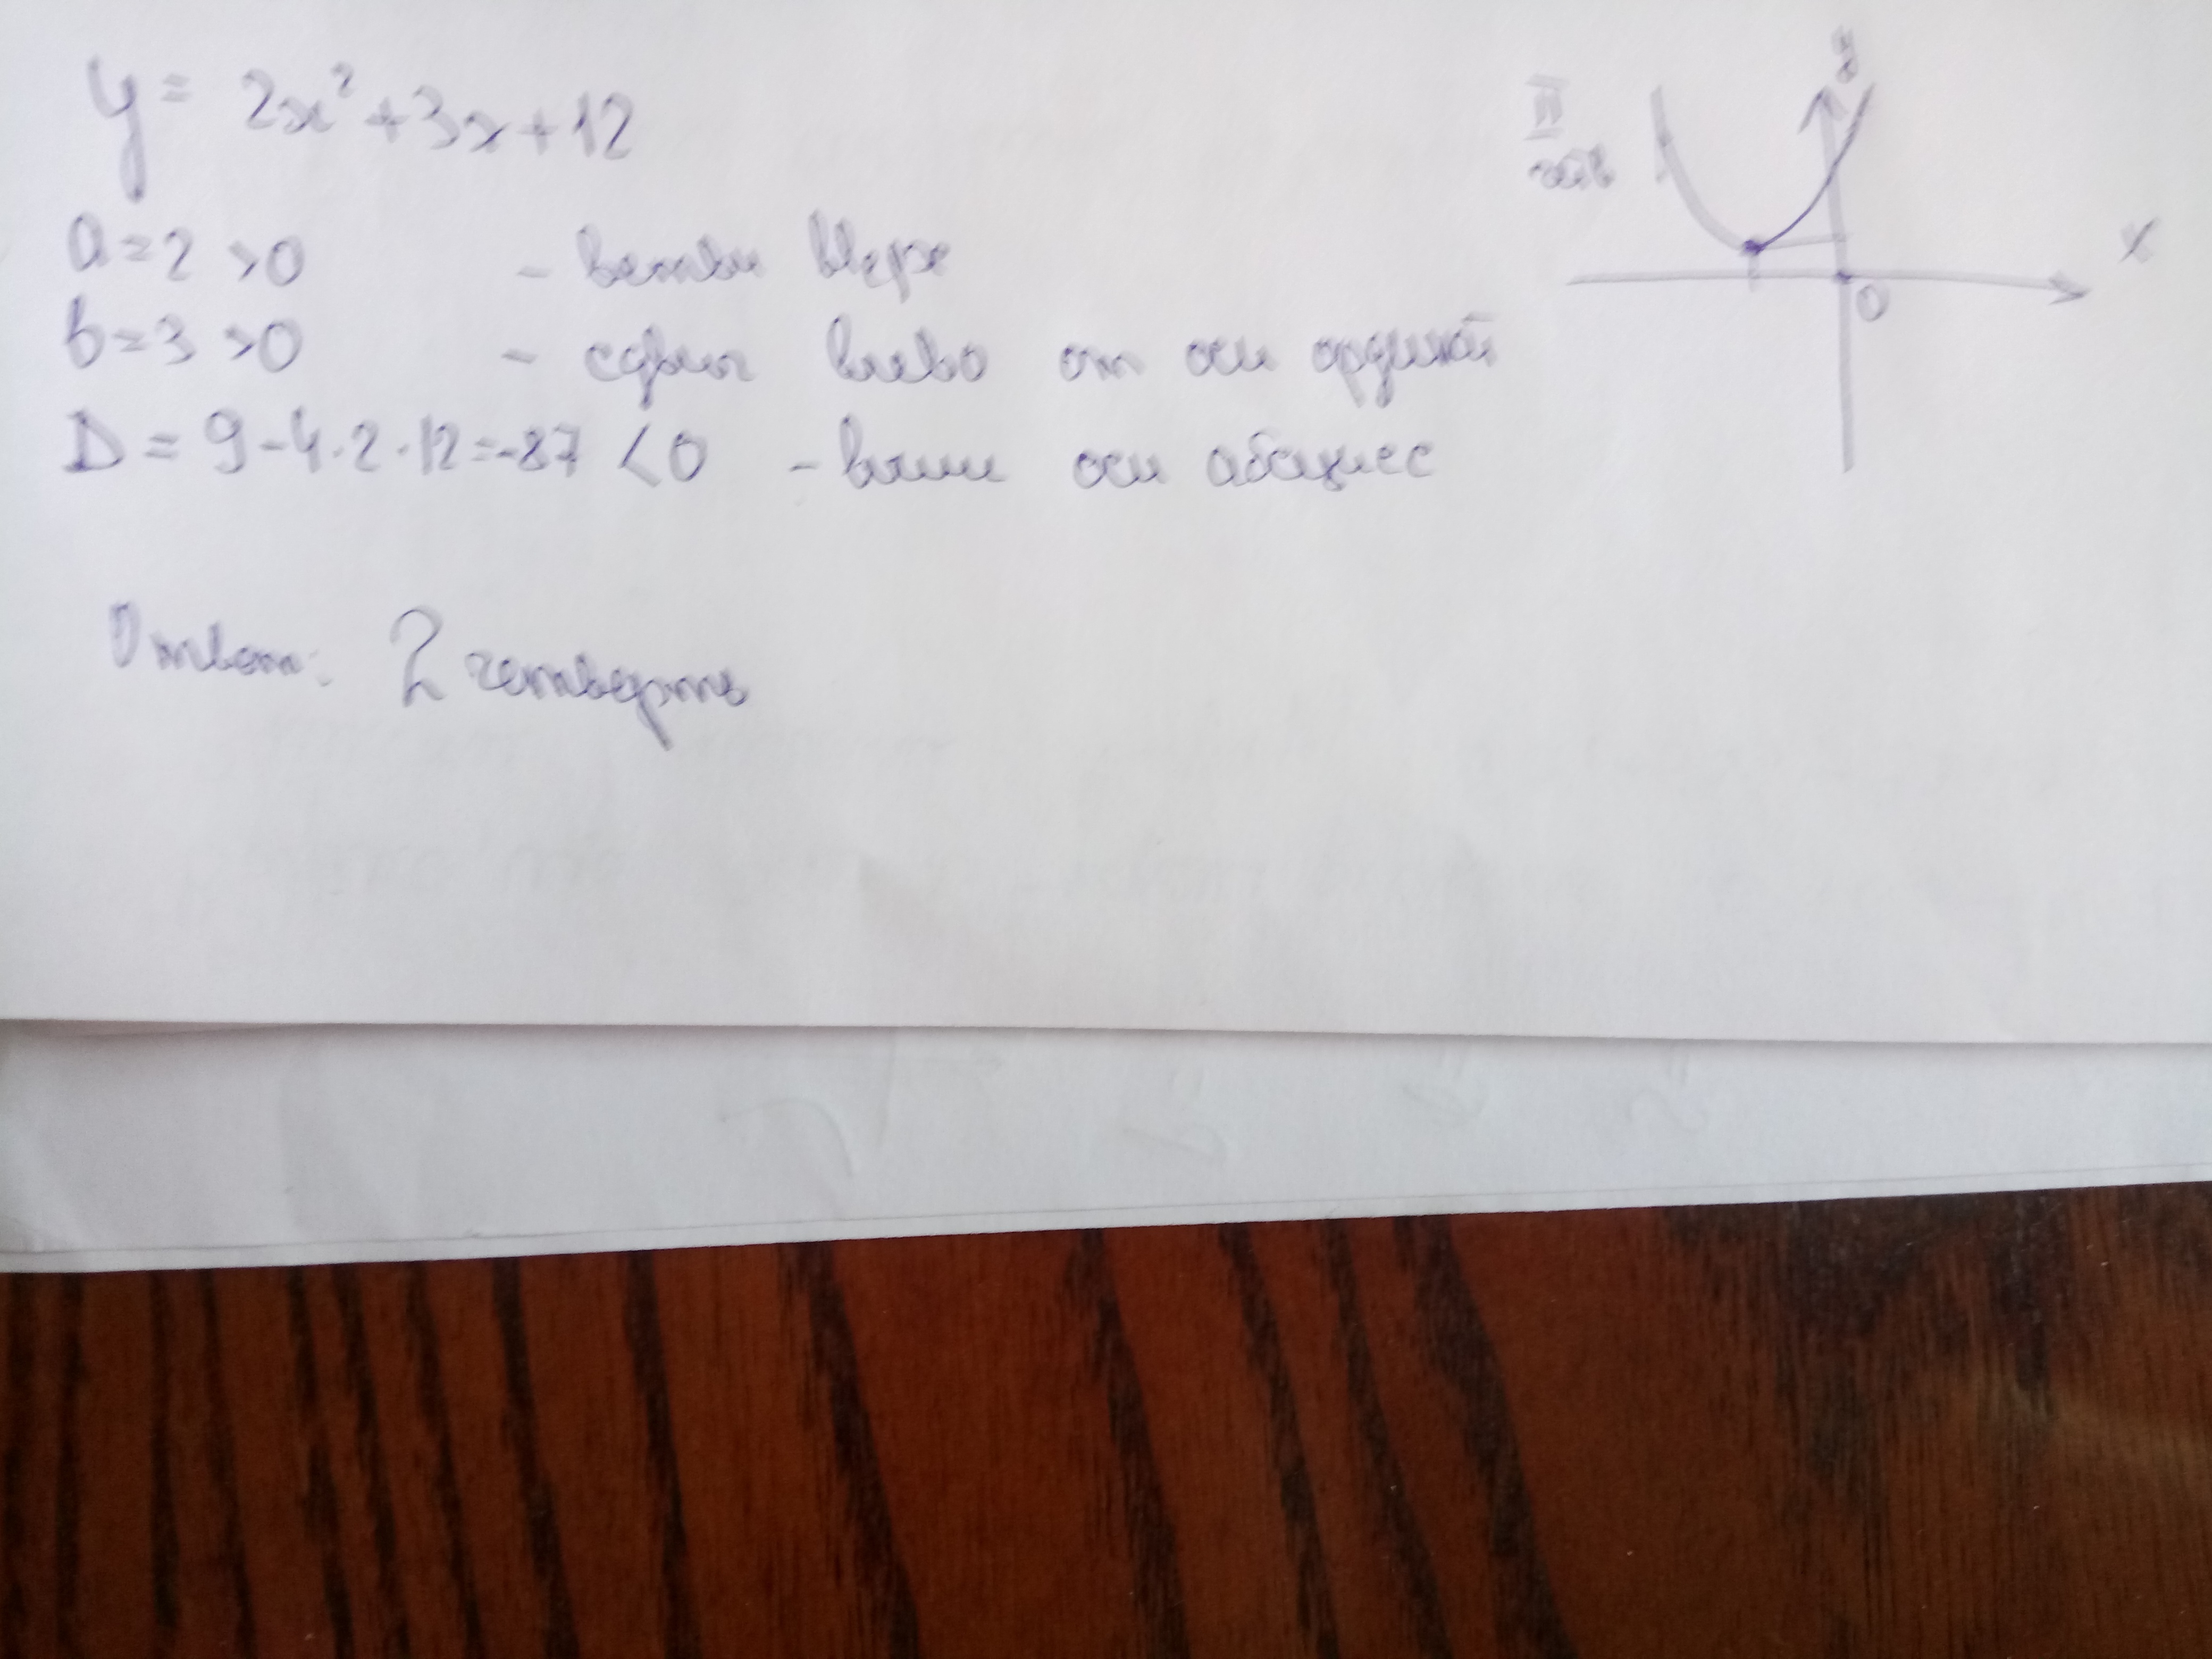 y = 2x² + 3x + 12
a = 2 > 0 - ветви вверх
b = 3 > 0 - сдвиг влево от оси ординат
D = 9 - 4 · 2 · 12 = -87 < 0 - выше оси абсцисс
Ответ: 2 четверть
y
II
четв
x
0